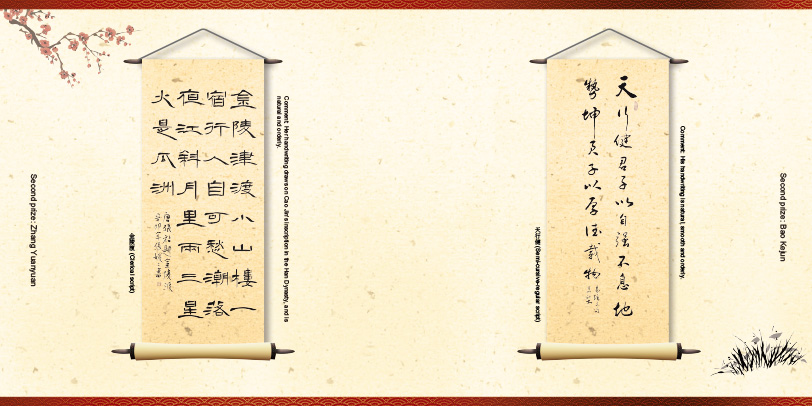 Second prize: Zhang Yuanyuan
金陵渡 (Clerical script)
金陵津渡小山樓一
宿行人自可愁潮落
夜江斜月里兩三星
火是瓜洲
Comment: Her handwriting draws on Cao Jin's inscription in the Han Dynasty, and is
natural and orderly.
天行健 (Semi-cursive-regular script)
天行健君子以自强不息地
勢坤君子以厚德載物
Comment: His handwriting is natural, smooth and orderly.
Second prize: Bao Kejun